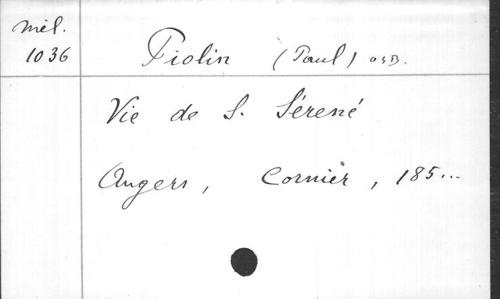 mél.
1036
Piolin (Paul) OSB.
Vie de S. Sérené
Angers, Cornier, 185...